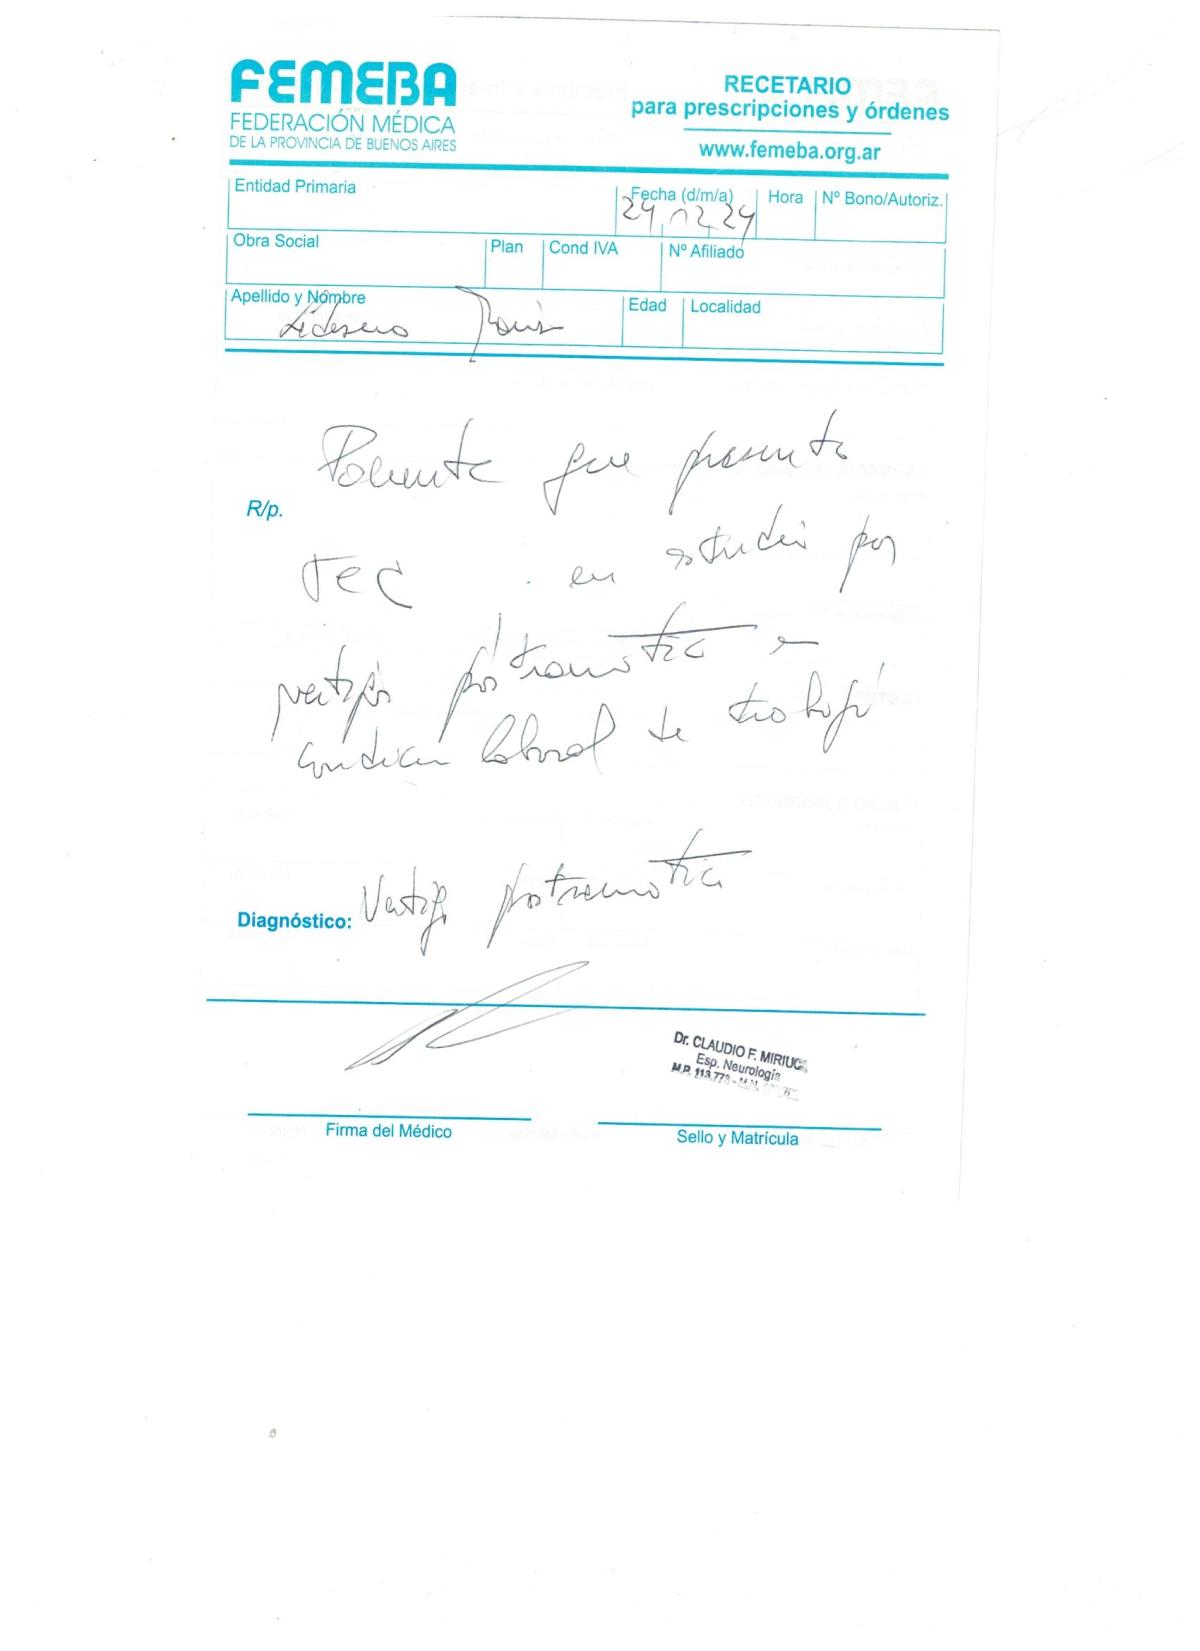 FEMEBA
FEDERACIÓN MÉDICA
DE LA PROVINCIA DE BUENOS AIRES
RECETARIO
para prescripciones y órdenes
www.femeba.org.ar
Entidad Primaria
Fecha (d/m/a)
24 12 24
Hora
Nº Bono/Autoriz.
Obra Social
Plan
Cond IVA
Nº Afiliado
Apellido y Nombre
Edad
Localidad
Paciente que presenta
R/p.
TEC en estudio por
vertigo postraumatico
laboral de trabajo
Diagnóstico: Vertigo postraumatico
Dr. CLAUDIO F. MIRIUC
Esp. Neurología
M.P. 113.773 - M.N.
Firma del Médico
Sello y Matrícula